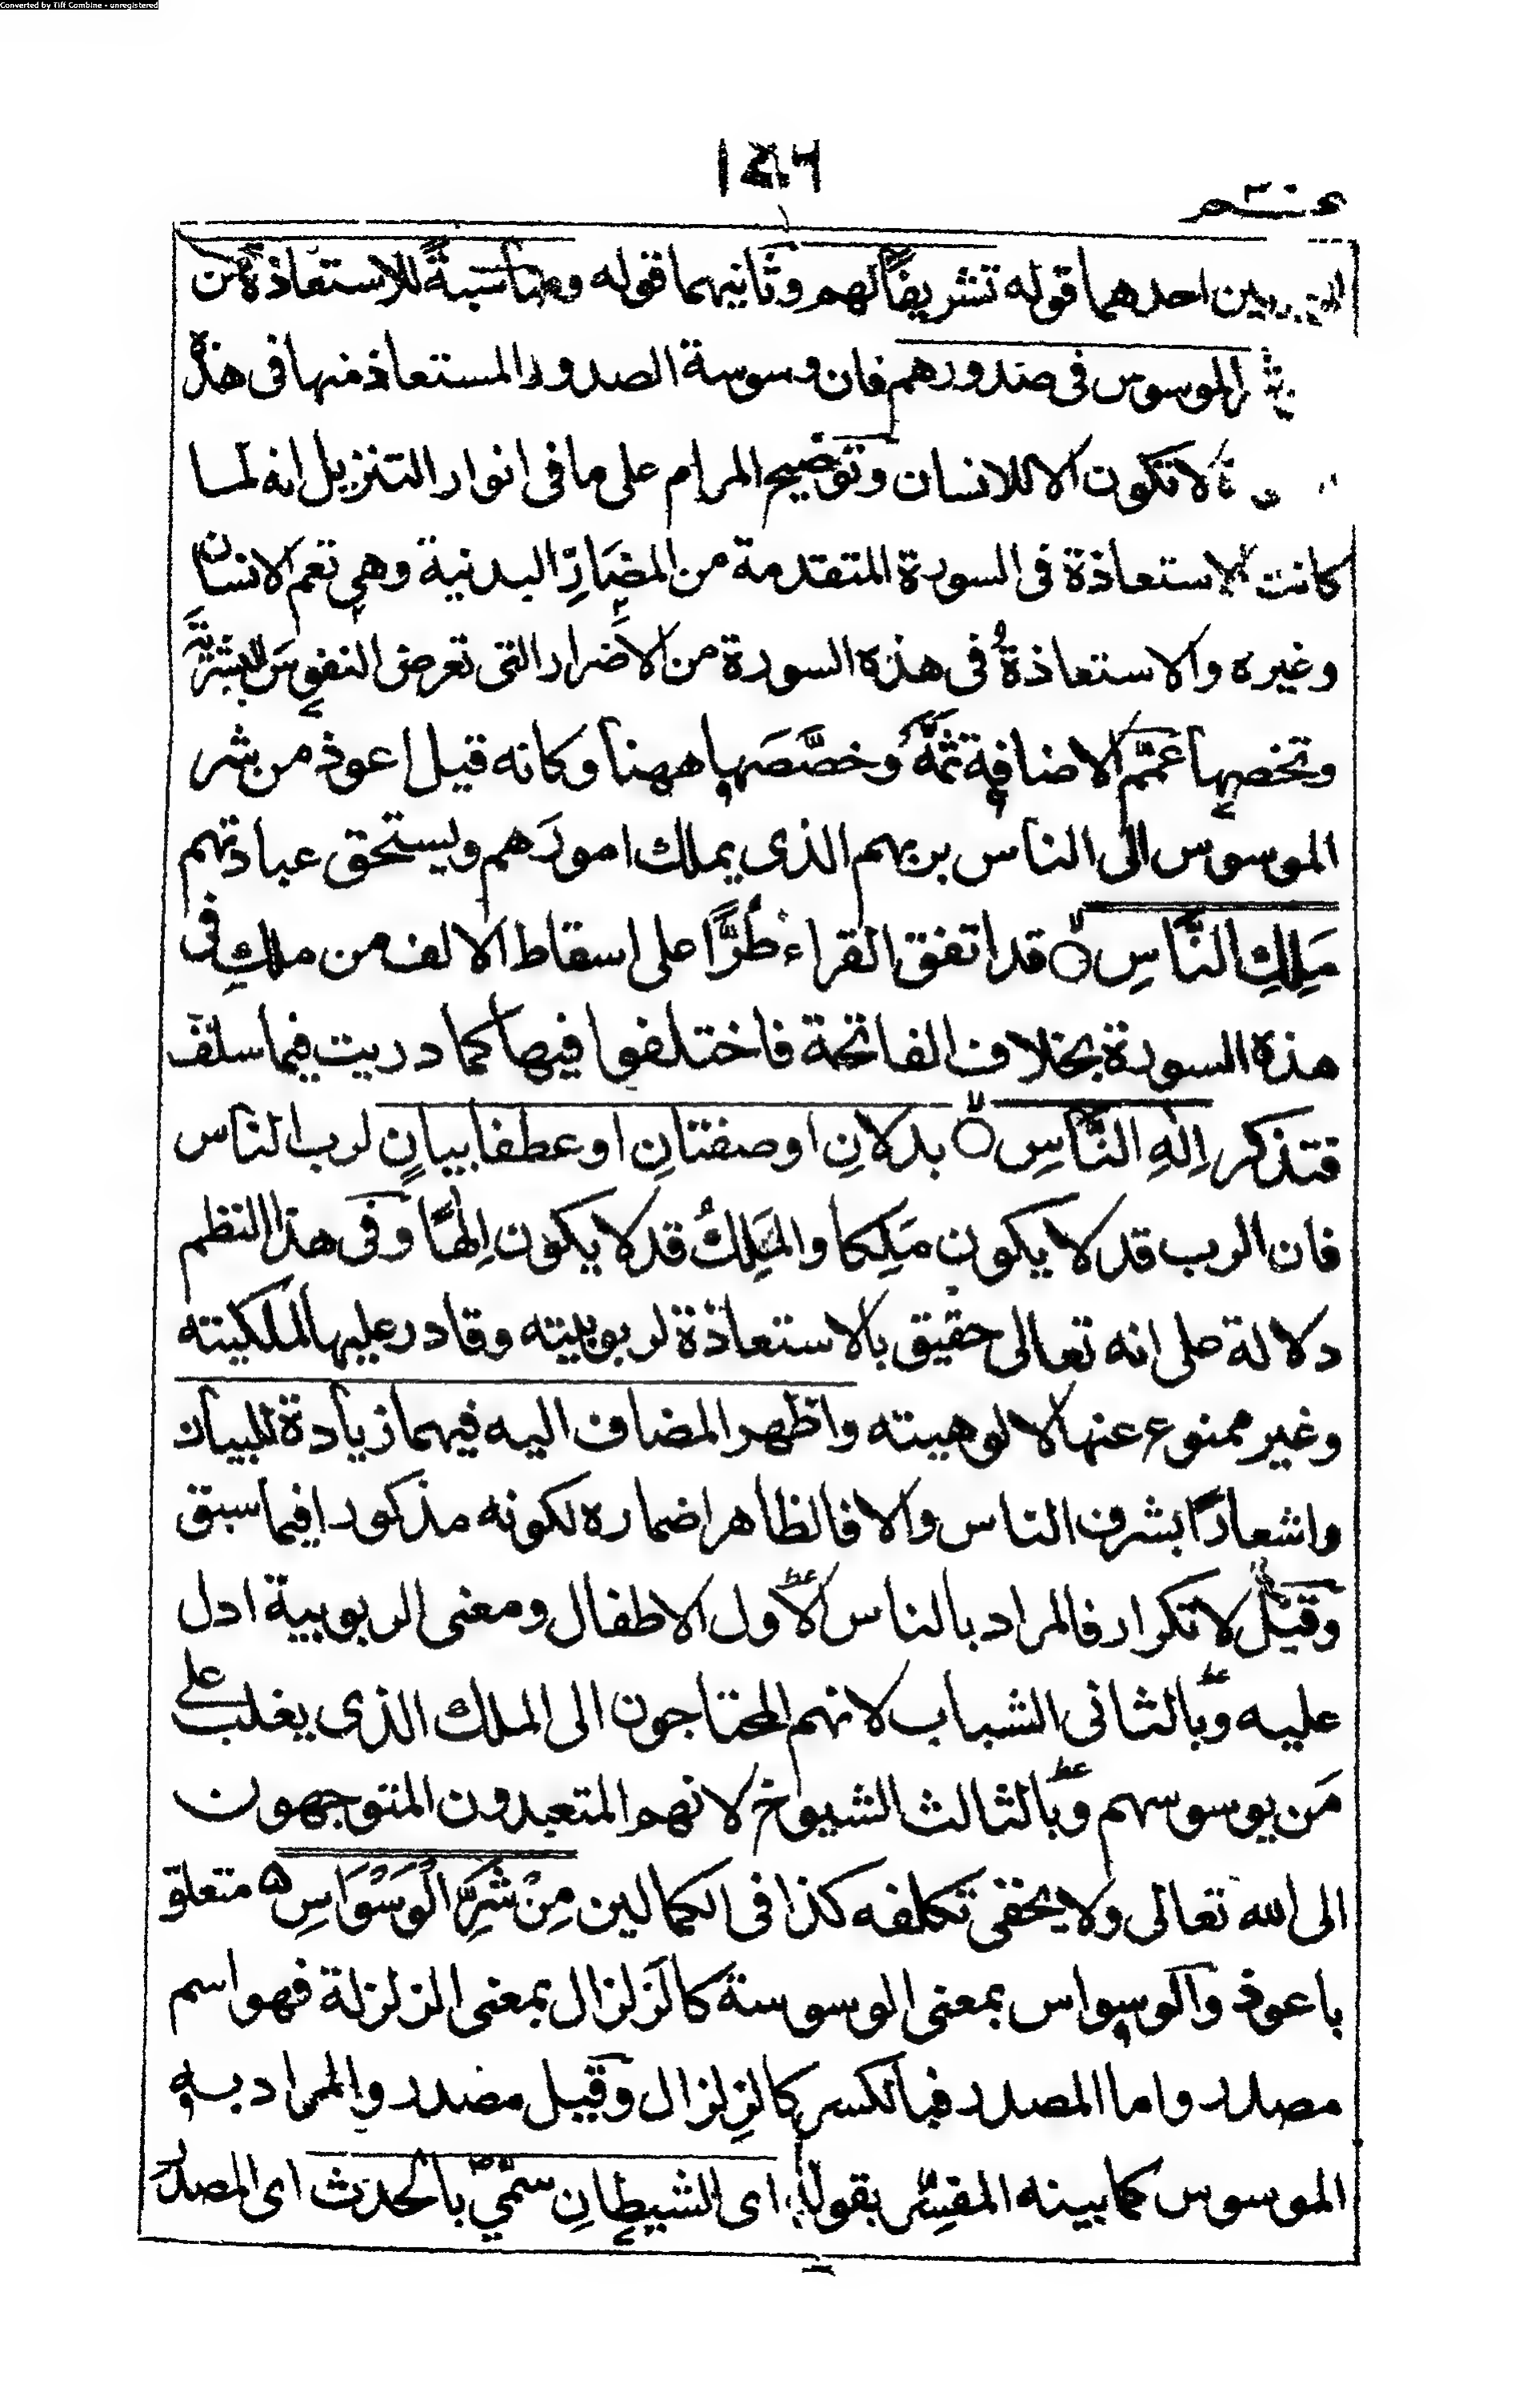 Converted by Tiff Combine - unregistered
عـم
احدهما قوله تشريفا لهم وثانيهما قوله ومناسبةً للاستعاذة من
الموسوس فى صدورهم فان وسوسة الصدور المستعاذ منها فى هذه
لا تكون الا للانسان وتوضيح المرام على ما فى انوار التنزيل انه لما
كانت الاستعاذة فى السورة المتقدمة من المضارِّ البدنية وهى تعم الانسان
وغيره والاستعاذةُ فى هذه السورة من الاضرار التى تعرض النفوس البشرية
وتخصها عَمَّم الاضافة ثَمَّه وخصَّصَها ههنا وكانه قيل اعوذ من شر
الموسوس الى الناس بربهم الذى يملك امورَهم ويستحق عبادتهم
مَلِكِ النَّاسِ ۝ قد اتفق القراء طُرًّا على اسقاط الالف من ملكِ فى
هذه السورة بخلاف الفاتحة فاختلفوا فيها كما دريت فيما سلف
فتذكر اِلٰهِ النَّاسِ ۝ بدلانِ او صفتانِ او عطفا بيانٍ لرب الناس
فان الرب قد لا يكون مَلِكا والمَلِكُ قد لا يكون اِلٰهًا وفى هذا النظم
دلالة على انه تعالى حقيق بالاستعاذة لربوبيته وقادر عليها لملكيته
وغير ممنوع عنها لالوهيته واظهر المضاف اليه فيهما زيادة للبيان
واشعارًا بشرف الناس والا فالظاهر اضماره لكونه مذكورا فيما سبق
وقيل لا تكرار فالمراد بالناس الاول الاطفال ومعنى الربوبية ادل
عليه وبالثانى الشباب لانهم المحتاجون الى الملك الذى يغلب على
مَن يوسوسهم وبالثالث الشيوخ لانهم المتعبدون المتوجهون
الى الله تعالى ولا يخفى تكلفه كذا فى الكمالين مِنْ شَرِّ الْوَسْوَاسِ متعلق
باعوذ والوسواس بمعنى الوسوسة كالزَلزال بمعنى الزلزلة فهو اسم
مصدر واما المصدر فبالكسر كالزِلزال وقيل مصدر والمراد به
الموسوس كما بينه المفسِّر بقوله اى الشيطانِ سمّي بالحدث اى المصدر